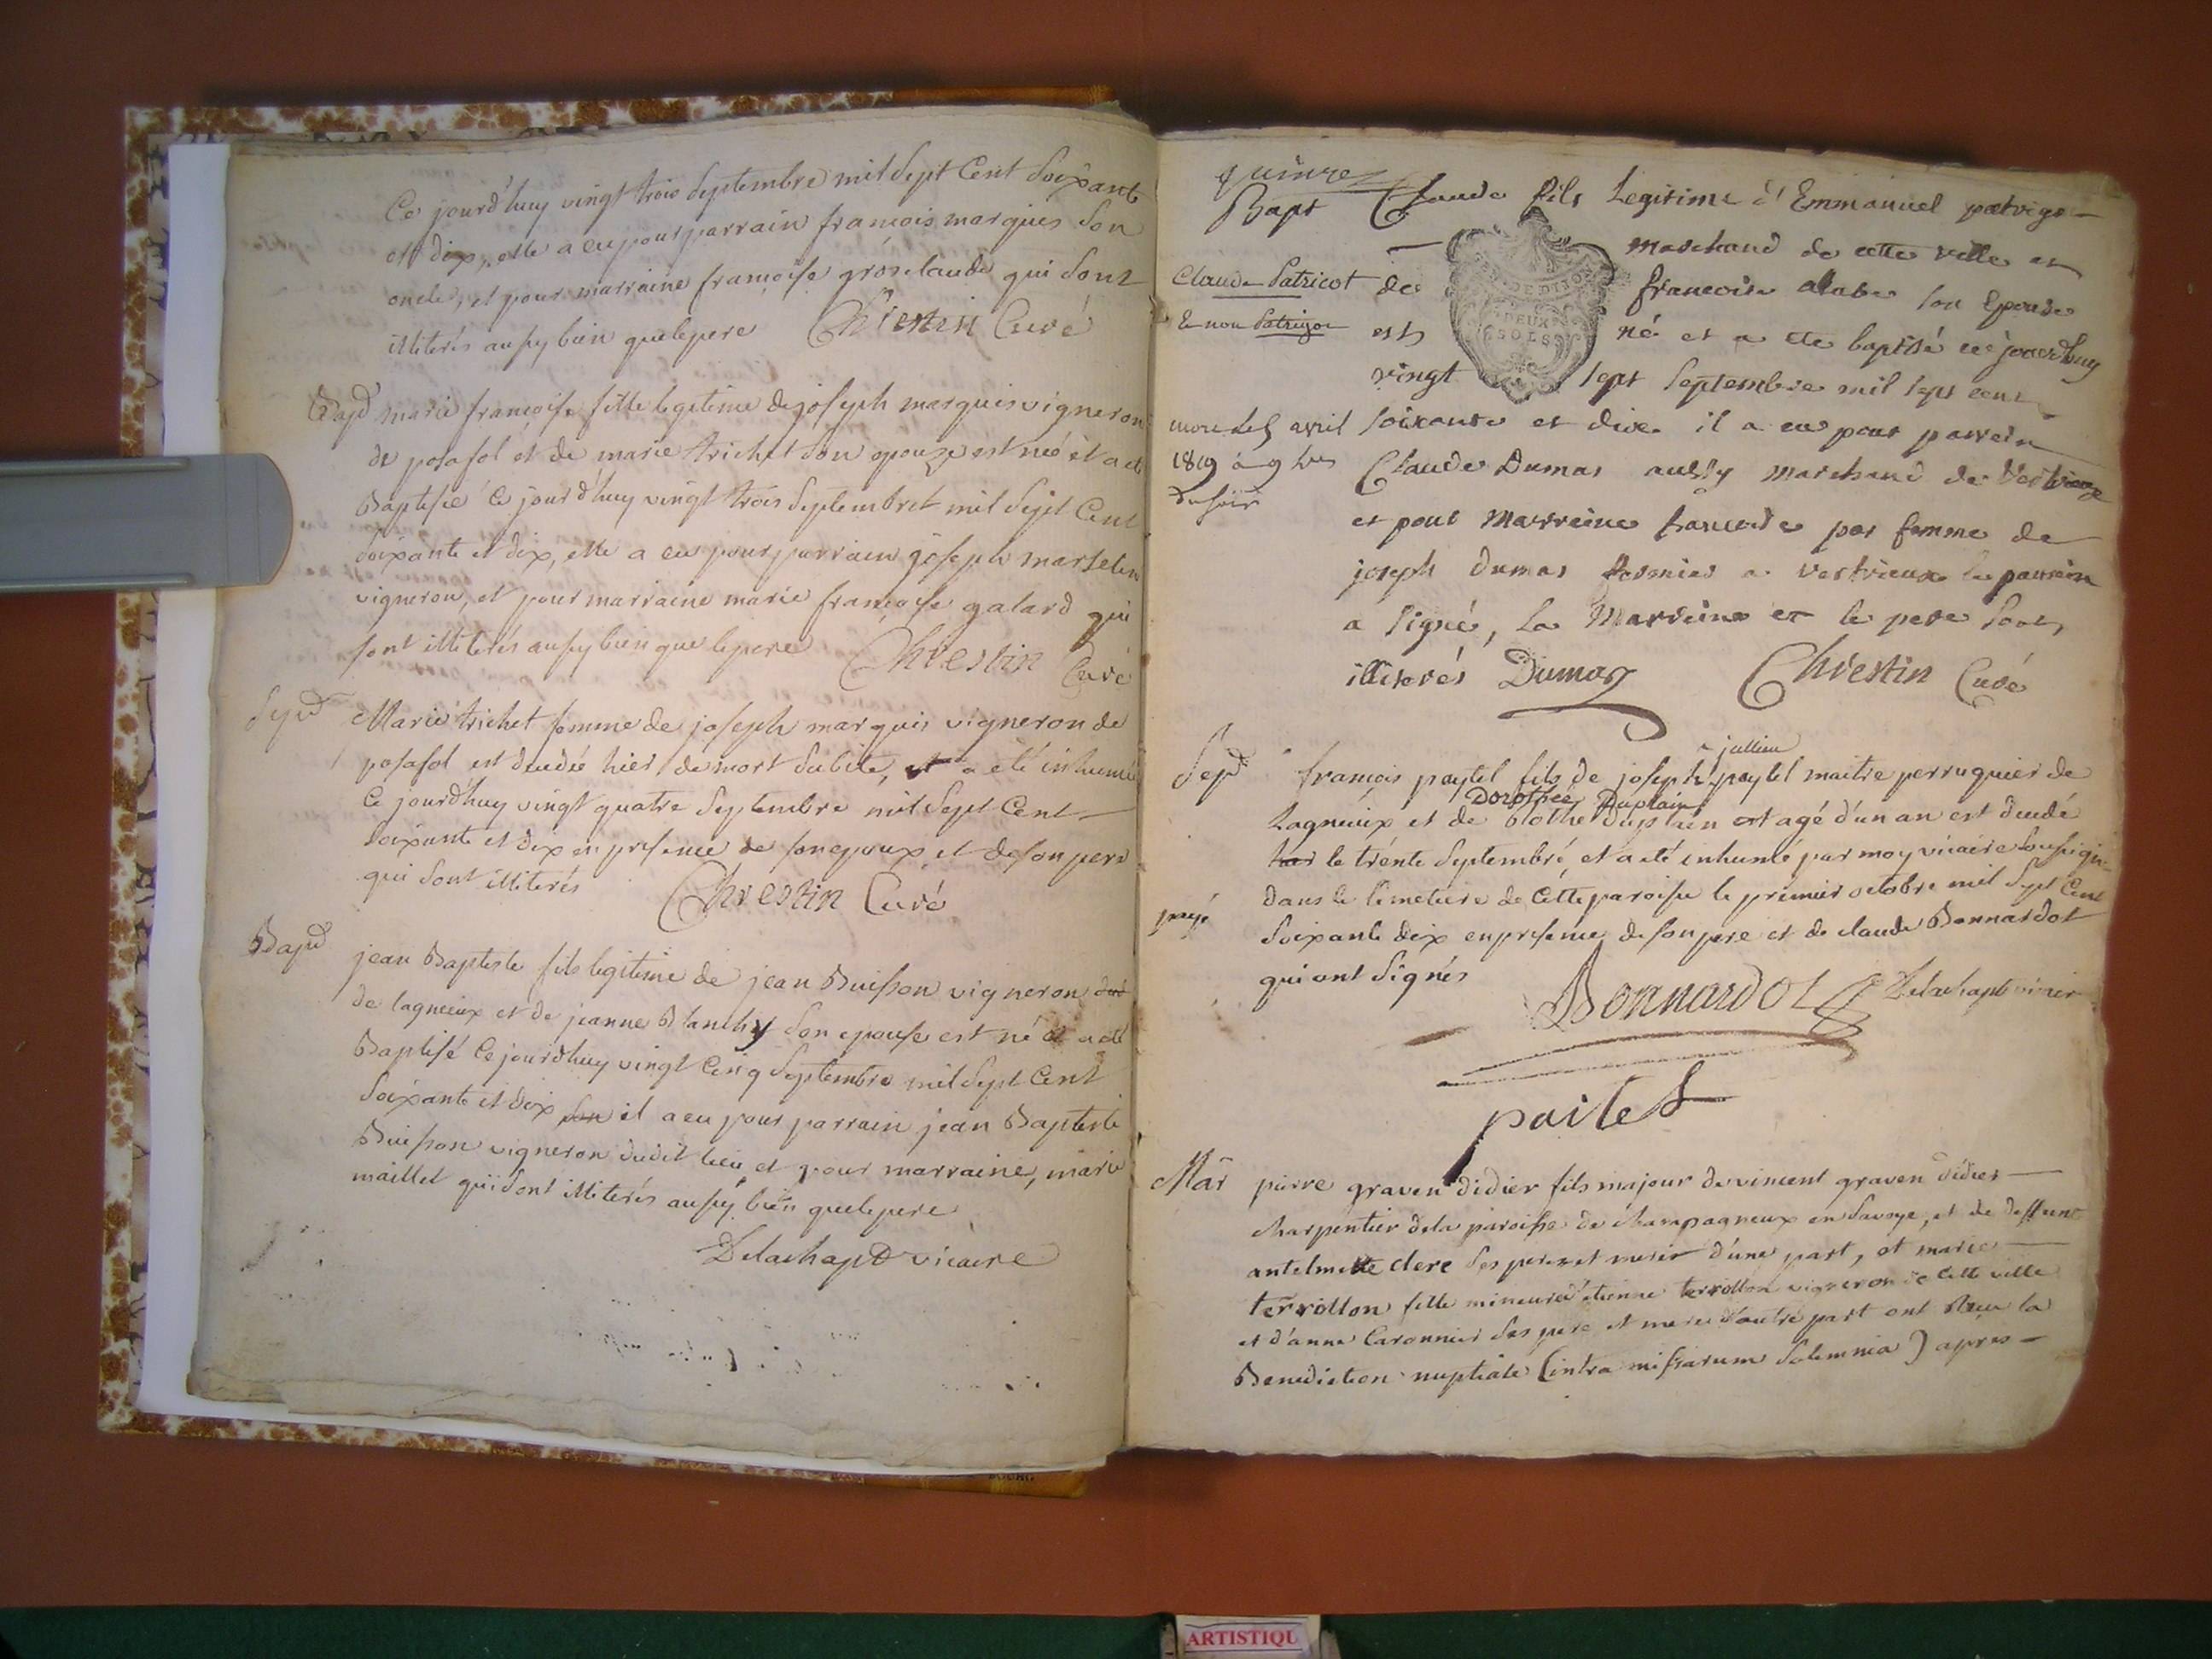 Ce jourd'huy vingt trois Septembre mil Sept Cent Soixante
et dix, elle a eu pour parrain francois marquis Son
oncle, et pour marraine françoise grosclaude qui Sont
illiterés aussy bien que le pere Chrestin Curé
Bapt marie françoise fille legitime de joseph marquis vigneron
de posafol et de marie trichet Son epouze est née et a eté
Baptisée Ce jourd'huy vingt trois Septembre mil Sept Cent
Soixante et dix, elle a eu pour parrain joseph marselin
vigneron, et pour marraine marie françoise galard qui
sont illiterés aussy bien que le pere Chrestin Curé
Sept Marie trichet femme de joseph marquis vigneron de
posafol est decedée hier de mort Subite, et a eté inhumée
Ce jourd'huy vingt quatre Septembre mil Sept Cent
Soixante et dix en presence de son epoux et de son pere
qui Sont illiterés Chrestin Curé
Bapt jean Baptiste fils legitime de jean Buisson vigneron
de lagnieux et de jeanne Blanchy Son epouse est né et a eté
Baptisé Ce jourd'huy vingt Cinq Septembre mil Sept Cent
Soixante et dix il a eu pour parrain jean Baptiste
Buisson vigneron dudit lieu et pour marraine, marie
maillet qui Sont illiterés aussy bien que le pere
Delachapt vicaire
quinze
Bapt Claude fils Legitime d'Emmanuel patrigo
marchand de cette ville et
Claude Patricot de francoise alabe son Epouse
& non Patrigot est né et a ete baptisé ce jourdhuy
vingt sept Septembre mil sept cent
GEN. DE DIJON
DEUX
SOLS
mort le 5 avril soixante et dix il a eu pour parrein
1819 à 9 hres Claude Dumas aussy marchand de Vertrieux
du soir
et pour Marreine francoise par femme de
joseph Dumas fermier a Vertrieux le parrein
a signé, La Marreine et le pere sont
illiterés Dumas Chrestin Curé
jullien
Sept françois paytel fils de joseph paytel maitre perruquier de
Dorothée Duplain
Lagnieux et de Dothe Duplain agé d'un an est decedé
le trente Septembre, et a eté inhumé par moy vicaire Soussigné
dans le Cimetiere de Cette paroisse le premier octobre mil Sept Cent
payé Soixante dix en presence de son pere et de claude Bonnardot
qui ont Signés
Bonnardot Delachapt vicaire
paitel
Mar pierre graven didier fils majour de vincent graven didier
charpentier de la paroisse de champagneux en Savoye, et de deffunte
antelmette clerc Ses pere et mere d'une part, et marie
terrollon fille mineure d'etienne terrollon vigneron de Cette ville
et d'anne Caronnier Ses pere et mere d'autre part ont reçu la
Benediction nuptiale (intra missarum Solemnia) apres
ARTISTIQU